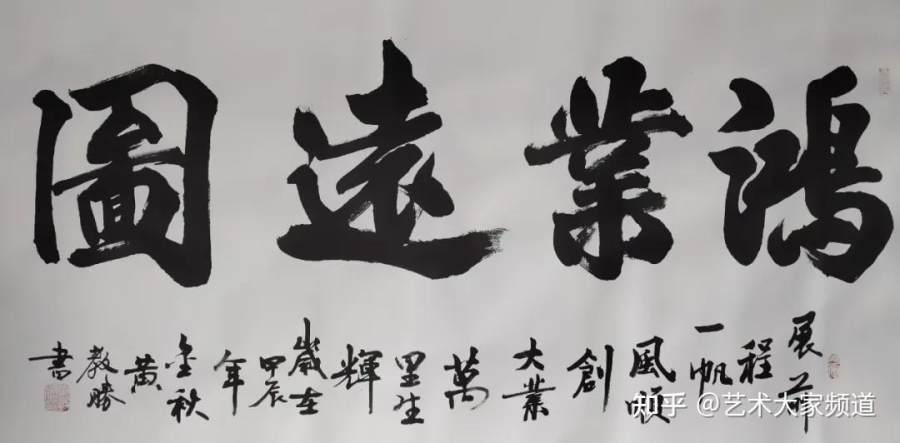 鴻業遠圖
展前
程
一帆
風順
創
大業
萬
里生
輝
歲在
甲辰
年
金秋
黃
教勝
書
知乎 @艺术大家频道